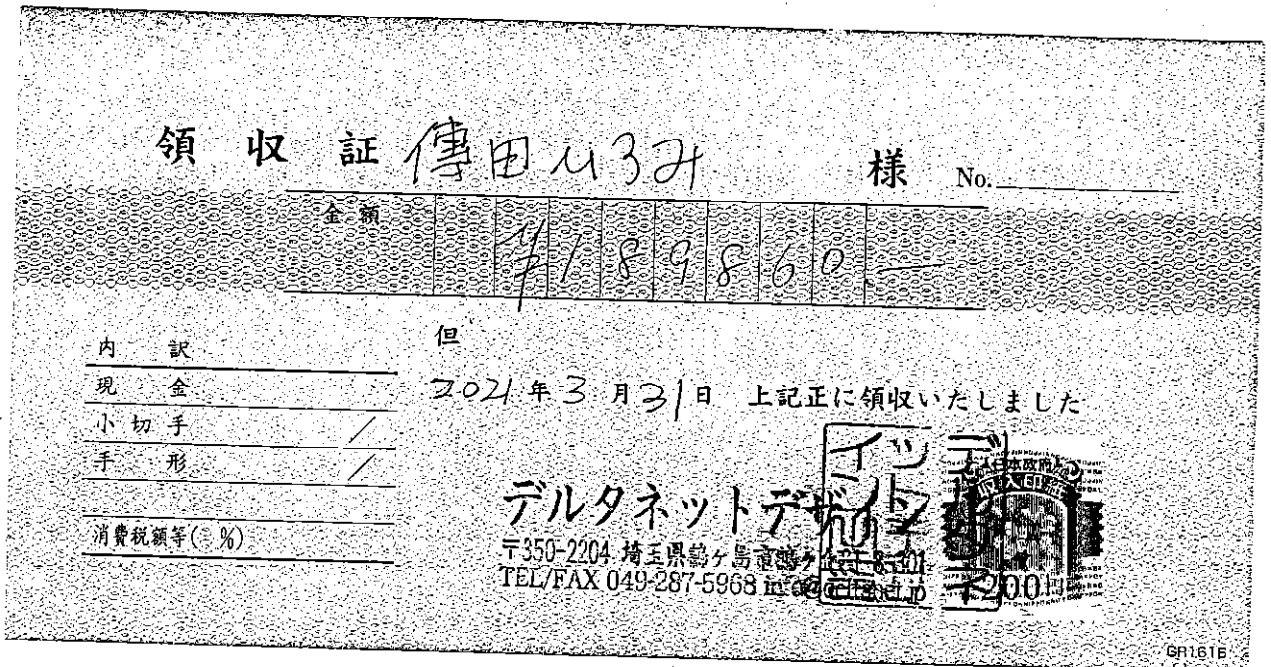 領収証 傳田ひろみ 様 No.
金額 ¥189860-
但
内訳
現金
2021年3月31日 上記正に領収いたしました
小切手 /
手形 /
消費税額等( %)
デルタネットデザイン
〒350-2204 埼玉県鶴ヶ島市鶴ヶ丘
TEL/FAX 049-287-5968
日本政府
収入印紙
200円
GR1616